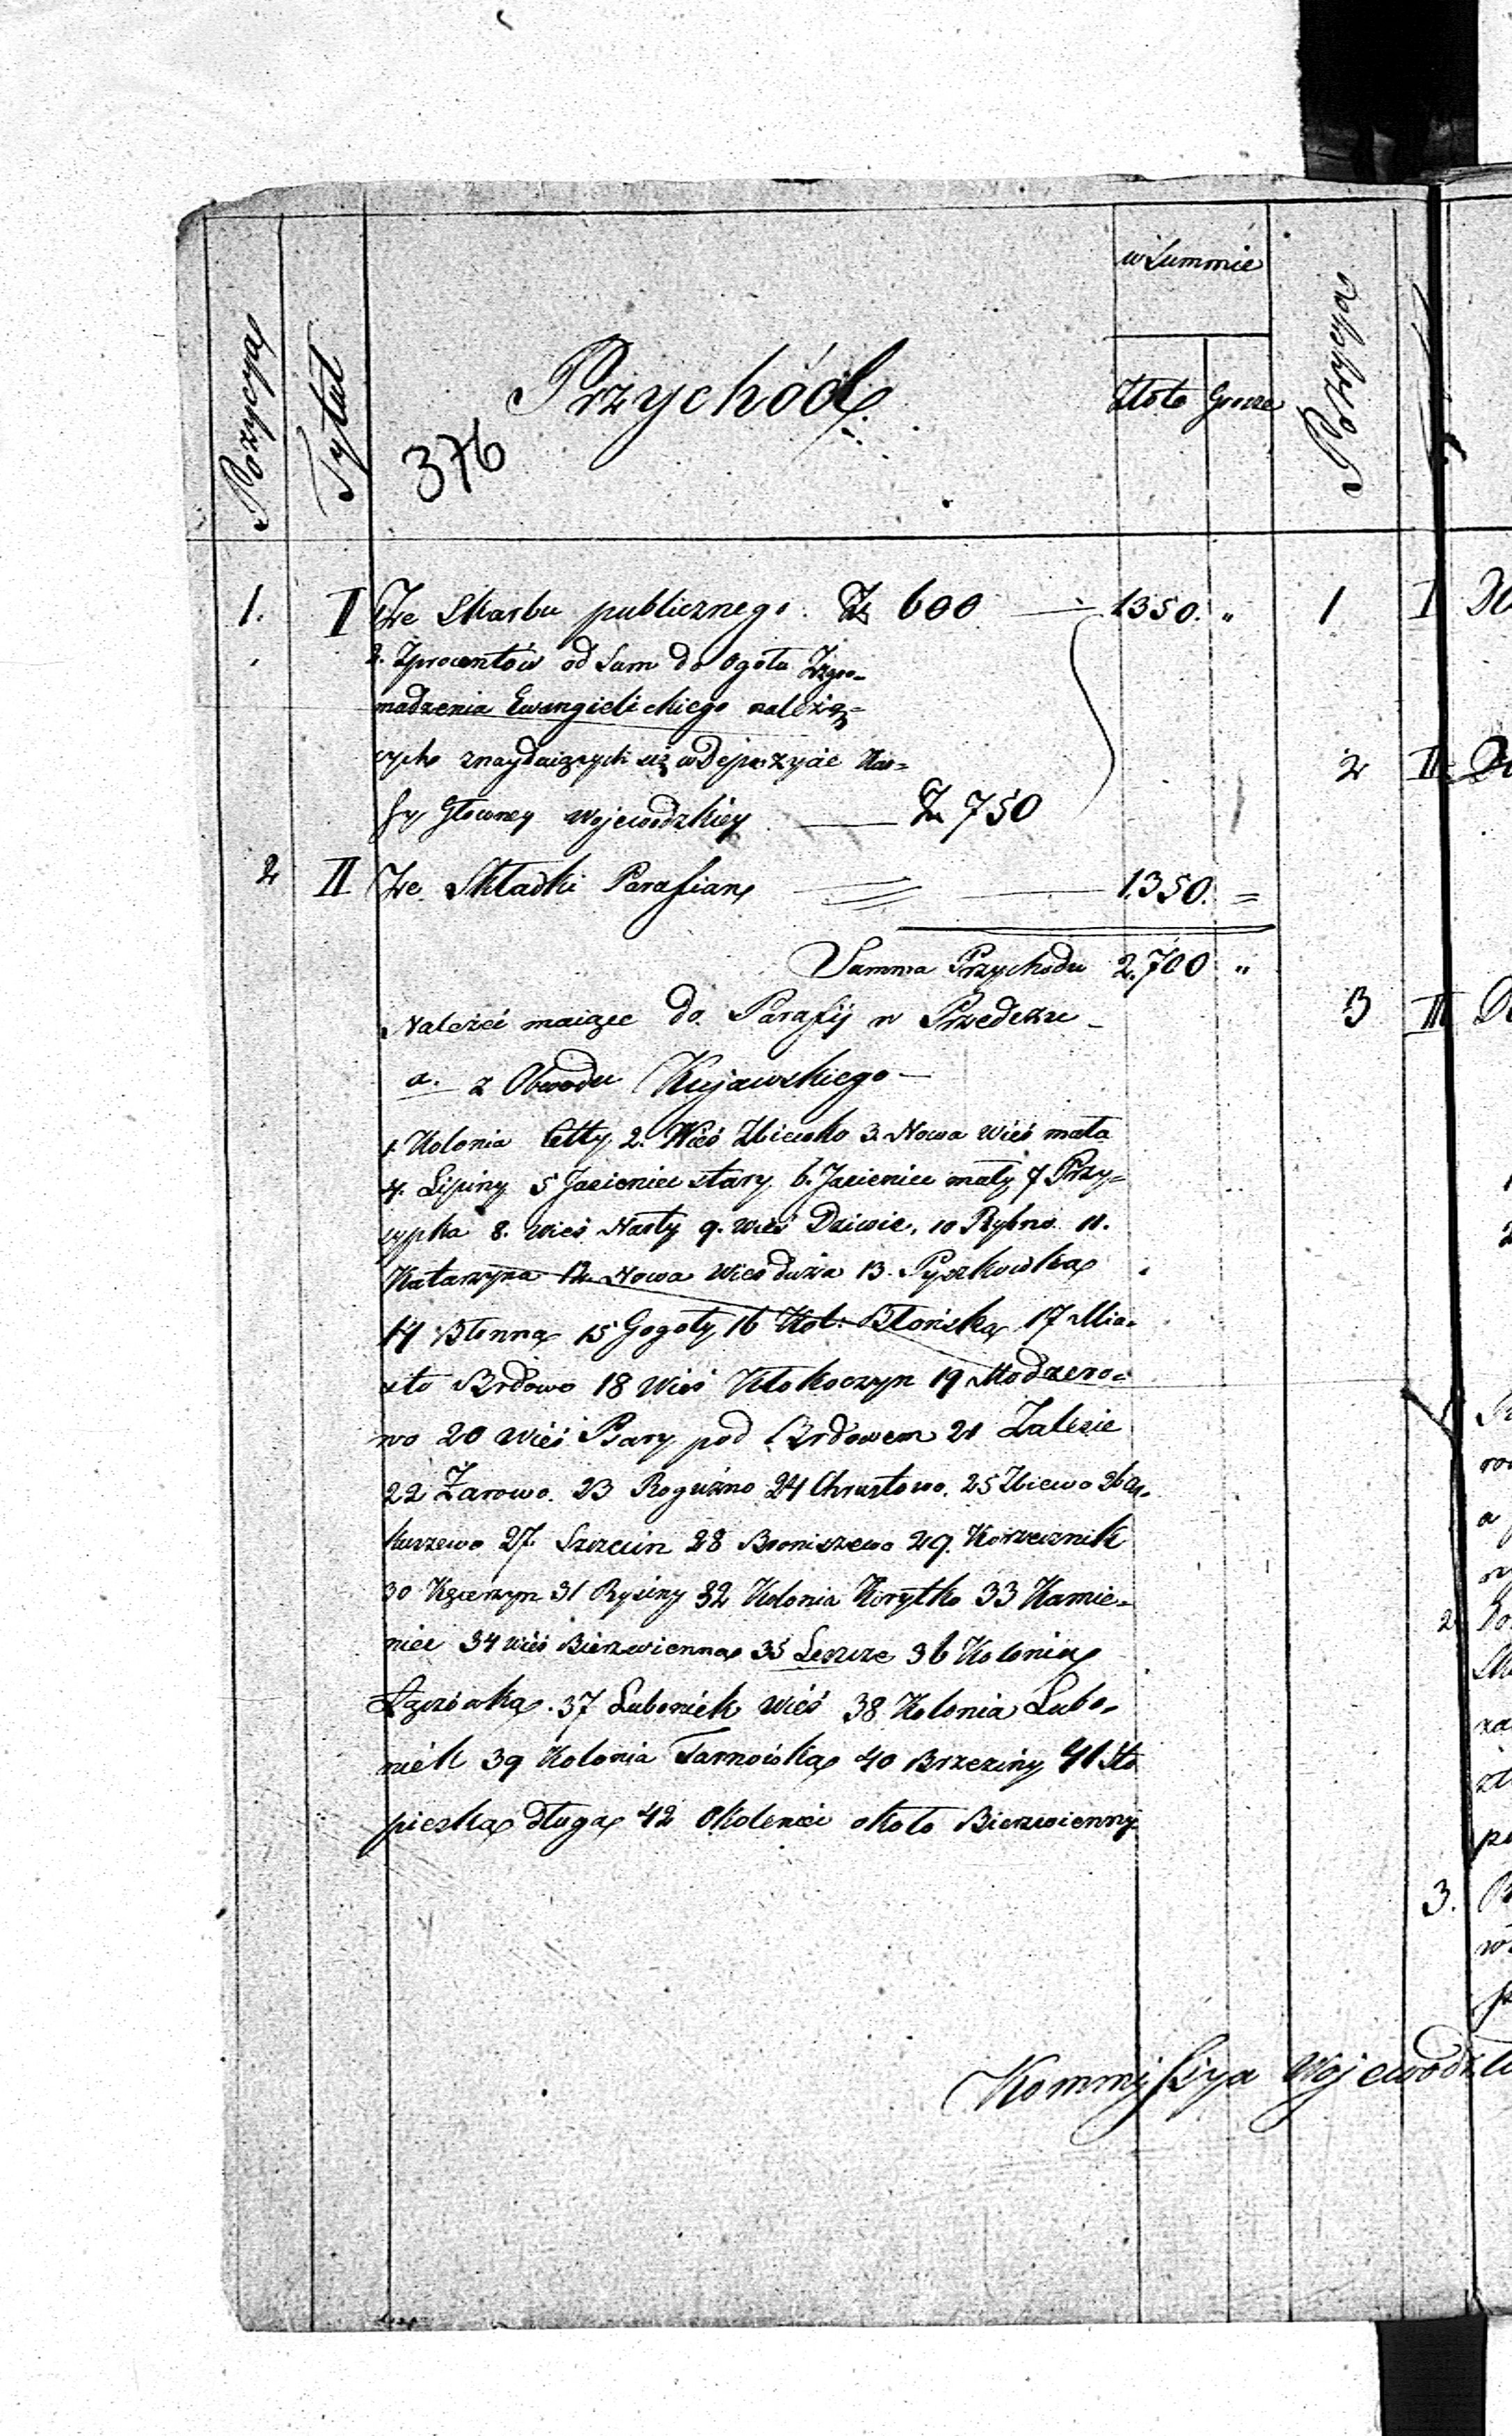 w Summie
Pozycya Tytuł Przychód Złote Grosze Pozycya
376
1. I Ze Skarbu publicznego Zł 600 — 1350. „ 1 I
2. Z procentów od Sum do ogółu Zgro-
madzenia Ewangielickiego należą-
cych znayduiących się w Depozycie Kas-
sy Głowney Wojewodzkiey — Zł 750 2 II
2 II Ze Składki Parafian — 1.350. =
Summa Przychodu 2.700 „
Należeć maiące do Parafij w Przedeczu - 3 III
a. z Obwodu Kujawskiego —
1. Kolonia Cetty 2. Wieś Zbiewko 3. Nowa wieś mała
4. Lipiny 5 Jasieniec stary 6. Jasieniec mały 7 Przy-
sypka 8. wieś Narty 9. wieś Dziwie, 10 Rybno 11.
Katarzyna 12. Nowa wies duża 13. Pyszkowka
14 Błenna 15 Gogoły 16 Kol: Błońska 17 Mia-
sto Brdowo 18 Wieś Kłokoczyn 19 Modzero-
wo 20 wieś Psary pod Brdowem 21 Zalesie
22 Żarowo. 23 Roguźno 24 Chrustowo. 25 Zbiewo 26
kuszewo 27. Szczecin 28 Broniszewo 29. Korzecznik
30 Kęcerzyn 31 Rysiny 32 Kolonia Korytko 33 Kamie-
niec 34 wieś Bierzwienna 35 Leszcze 36 Kolonia
37 Luboniek wieś 38 Kolonia Lubo-
niek 39 Kolonia Tarnówka 40 Brzeziny 41
pieczka długa 42 Oholenice około Bierzwienny
2
3.
Kommissya Wojewodzk